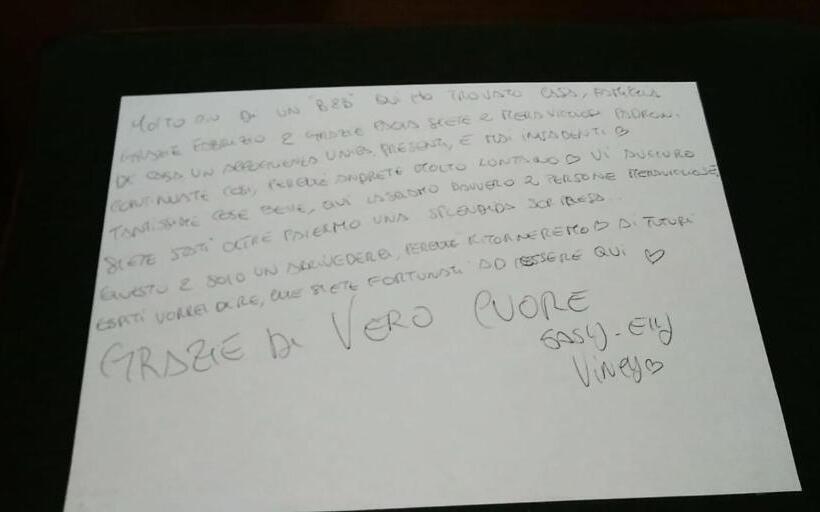 MOLTO PIÙ DI UN "B&B" QUI HO TROVATO CASA, FAMIGLIA
GRAZIE FABRIZIO E GRAZIE PAOLA SIETE 2 MERAVIGLIOSI PADRONI
DI CASA UN'ACCOGLIENZA UNICA. PRESENTI, E MAI INVADENTI ♡
CONTINUATE COSÌ, PERCHÉ ANDRETE MOLTO LONTANO ♡ VI AUGURO
TANTISSIME COSE BELLE, QUI LASCIAMO DAVVERO 2 PERSONE MERAVIGLIOSE,
SIETE STATI OLTRE PALERMO UNA SPLENDIDA SORPRESA..
QUESTO È SOLO UN ARRIVEDERCI, PERCHÉ RITORNEREMO ♡ AI FUTURI
OSPITI VORREI DIRE, CHE SIETE FORTUNATI AD ESSERE QUI ♡
GRAZIE DI VERO CUORE
GASLY - ELLY